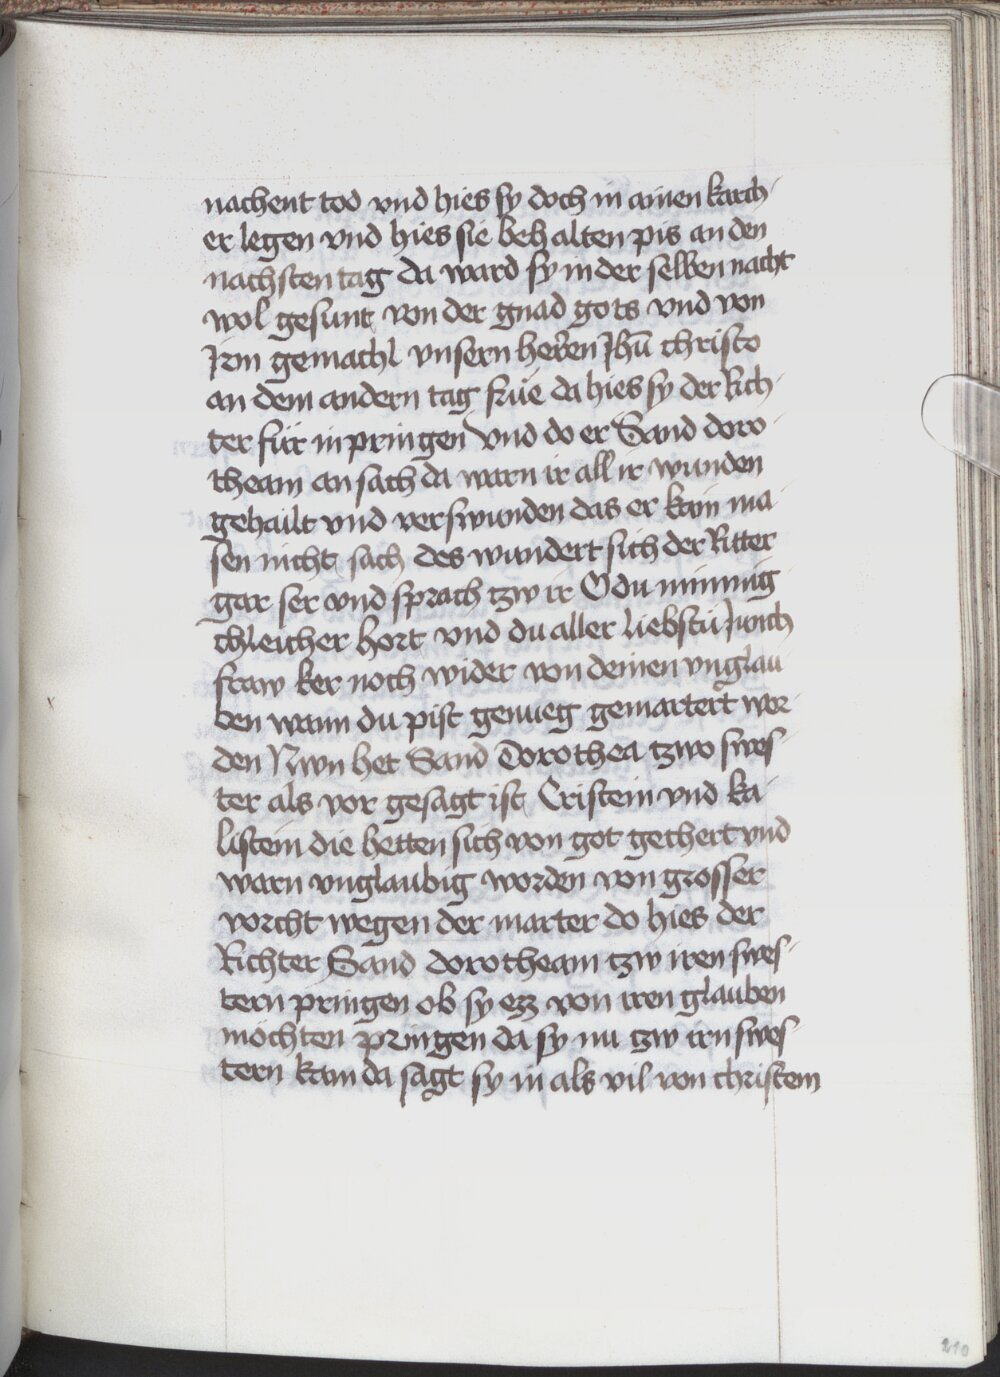 nachent tod vnd hies sy doch in ainen karch-
er legen vnd hies sie behalten pis an den
nachsten tag da ward sy in der selben nacht
wol gesunt von der gnad gots vnd von
Irm gemachl vnsern herren Jhū christo
an dem andern tag frue da hies sy der Rich-
ter für in pringen vnd do er Sand doro-
theam an sach da warn ir all ir wunden
gehailt vnd verswunden das er kain ma-
sen nicht sach des wundert sich der Ritter
gar ser vnd sprach tzw ir O du minnig
chleicher hort vnd du aller liebstü Junch
fraw ker noch wider von deinen vnglau
ben wann du pist genueg gemartert wor-
den Nwn het Sand Dorothea tzwo swes-
ter als vor gesagt ist Cristein vnd ka-
listein die hetten sich von got gechert vnd
warn vnglaubig worden von grosser
vorcht wegen der marter do hies der
Richter Sand dorotheam tzw iren swes-
tern pringen ob sy egz von iren glauben
mochten pringen da sy nu tzw irn swes-
tern kam da sagt sy in als vil von christem
210